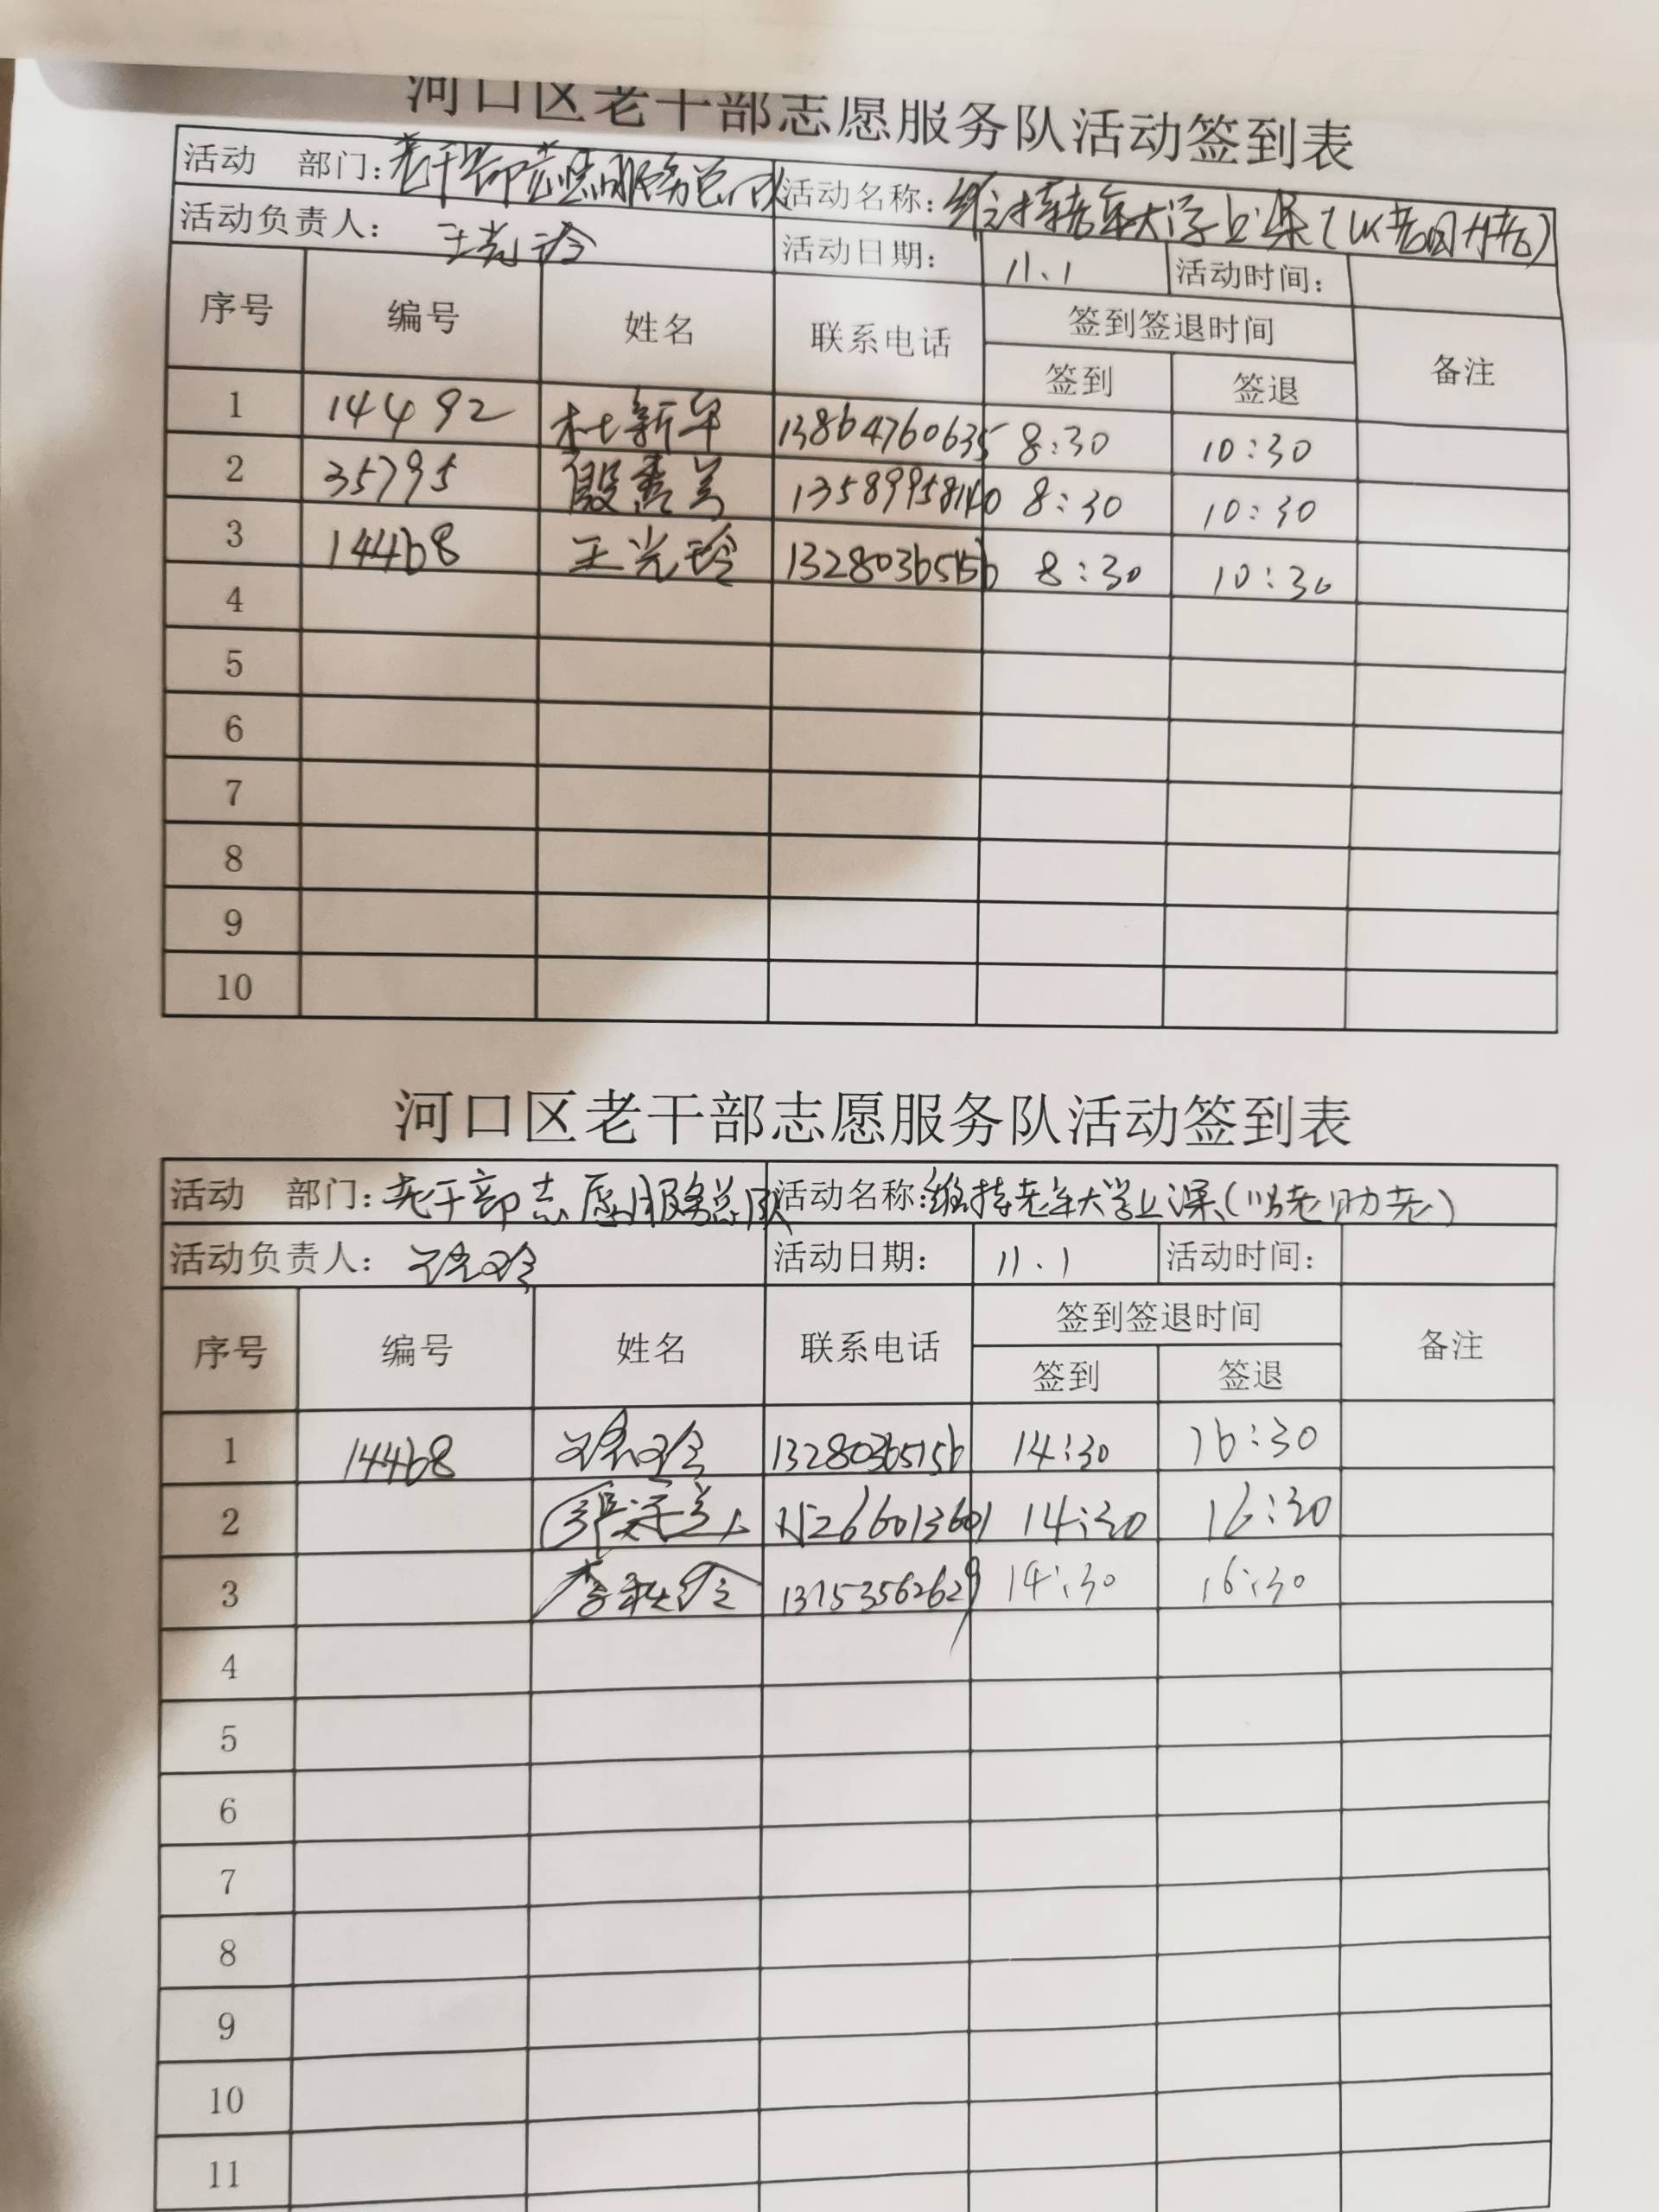 河口区老干部志愿服务队活动签到表
活动 部门：老干部志愿服务总队 活动名称：维持老年大学上课（以老助老）
活动负责人：王光玲 活动日期： 11.1 活动时间：
序号 编号 姓名 联系电话 签到签退时间 备注
签到 签退
1 14492 杜新年 13864760635 8:30 10:30
2 35795 殷秀兰 13589958140 8:30 10:30
3 14468 王光玲 13280365156 8:30 10:30
4
5
6
7
8
9
10
河口区老干部志愿服务队活动签到表
活动 部门：老干部志愿服务总队 活动名称：维持老年大学上课（以老助老）
活动负责人：王光玲 活动日期： 11.1 活动时间：
序号 编号 姓名 联系电话 签到签退时间 备注
签到 签退
1 14468 王光玲 13280365156 14:30 16:30
2 14:30 16:30
3 14:30 16:30
4
5
6
7
8
9
10
11